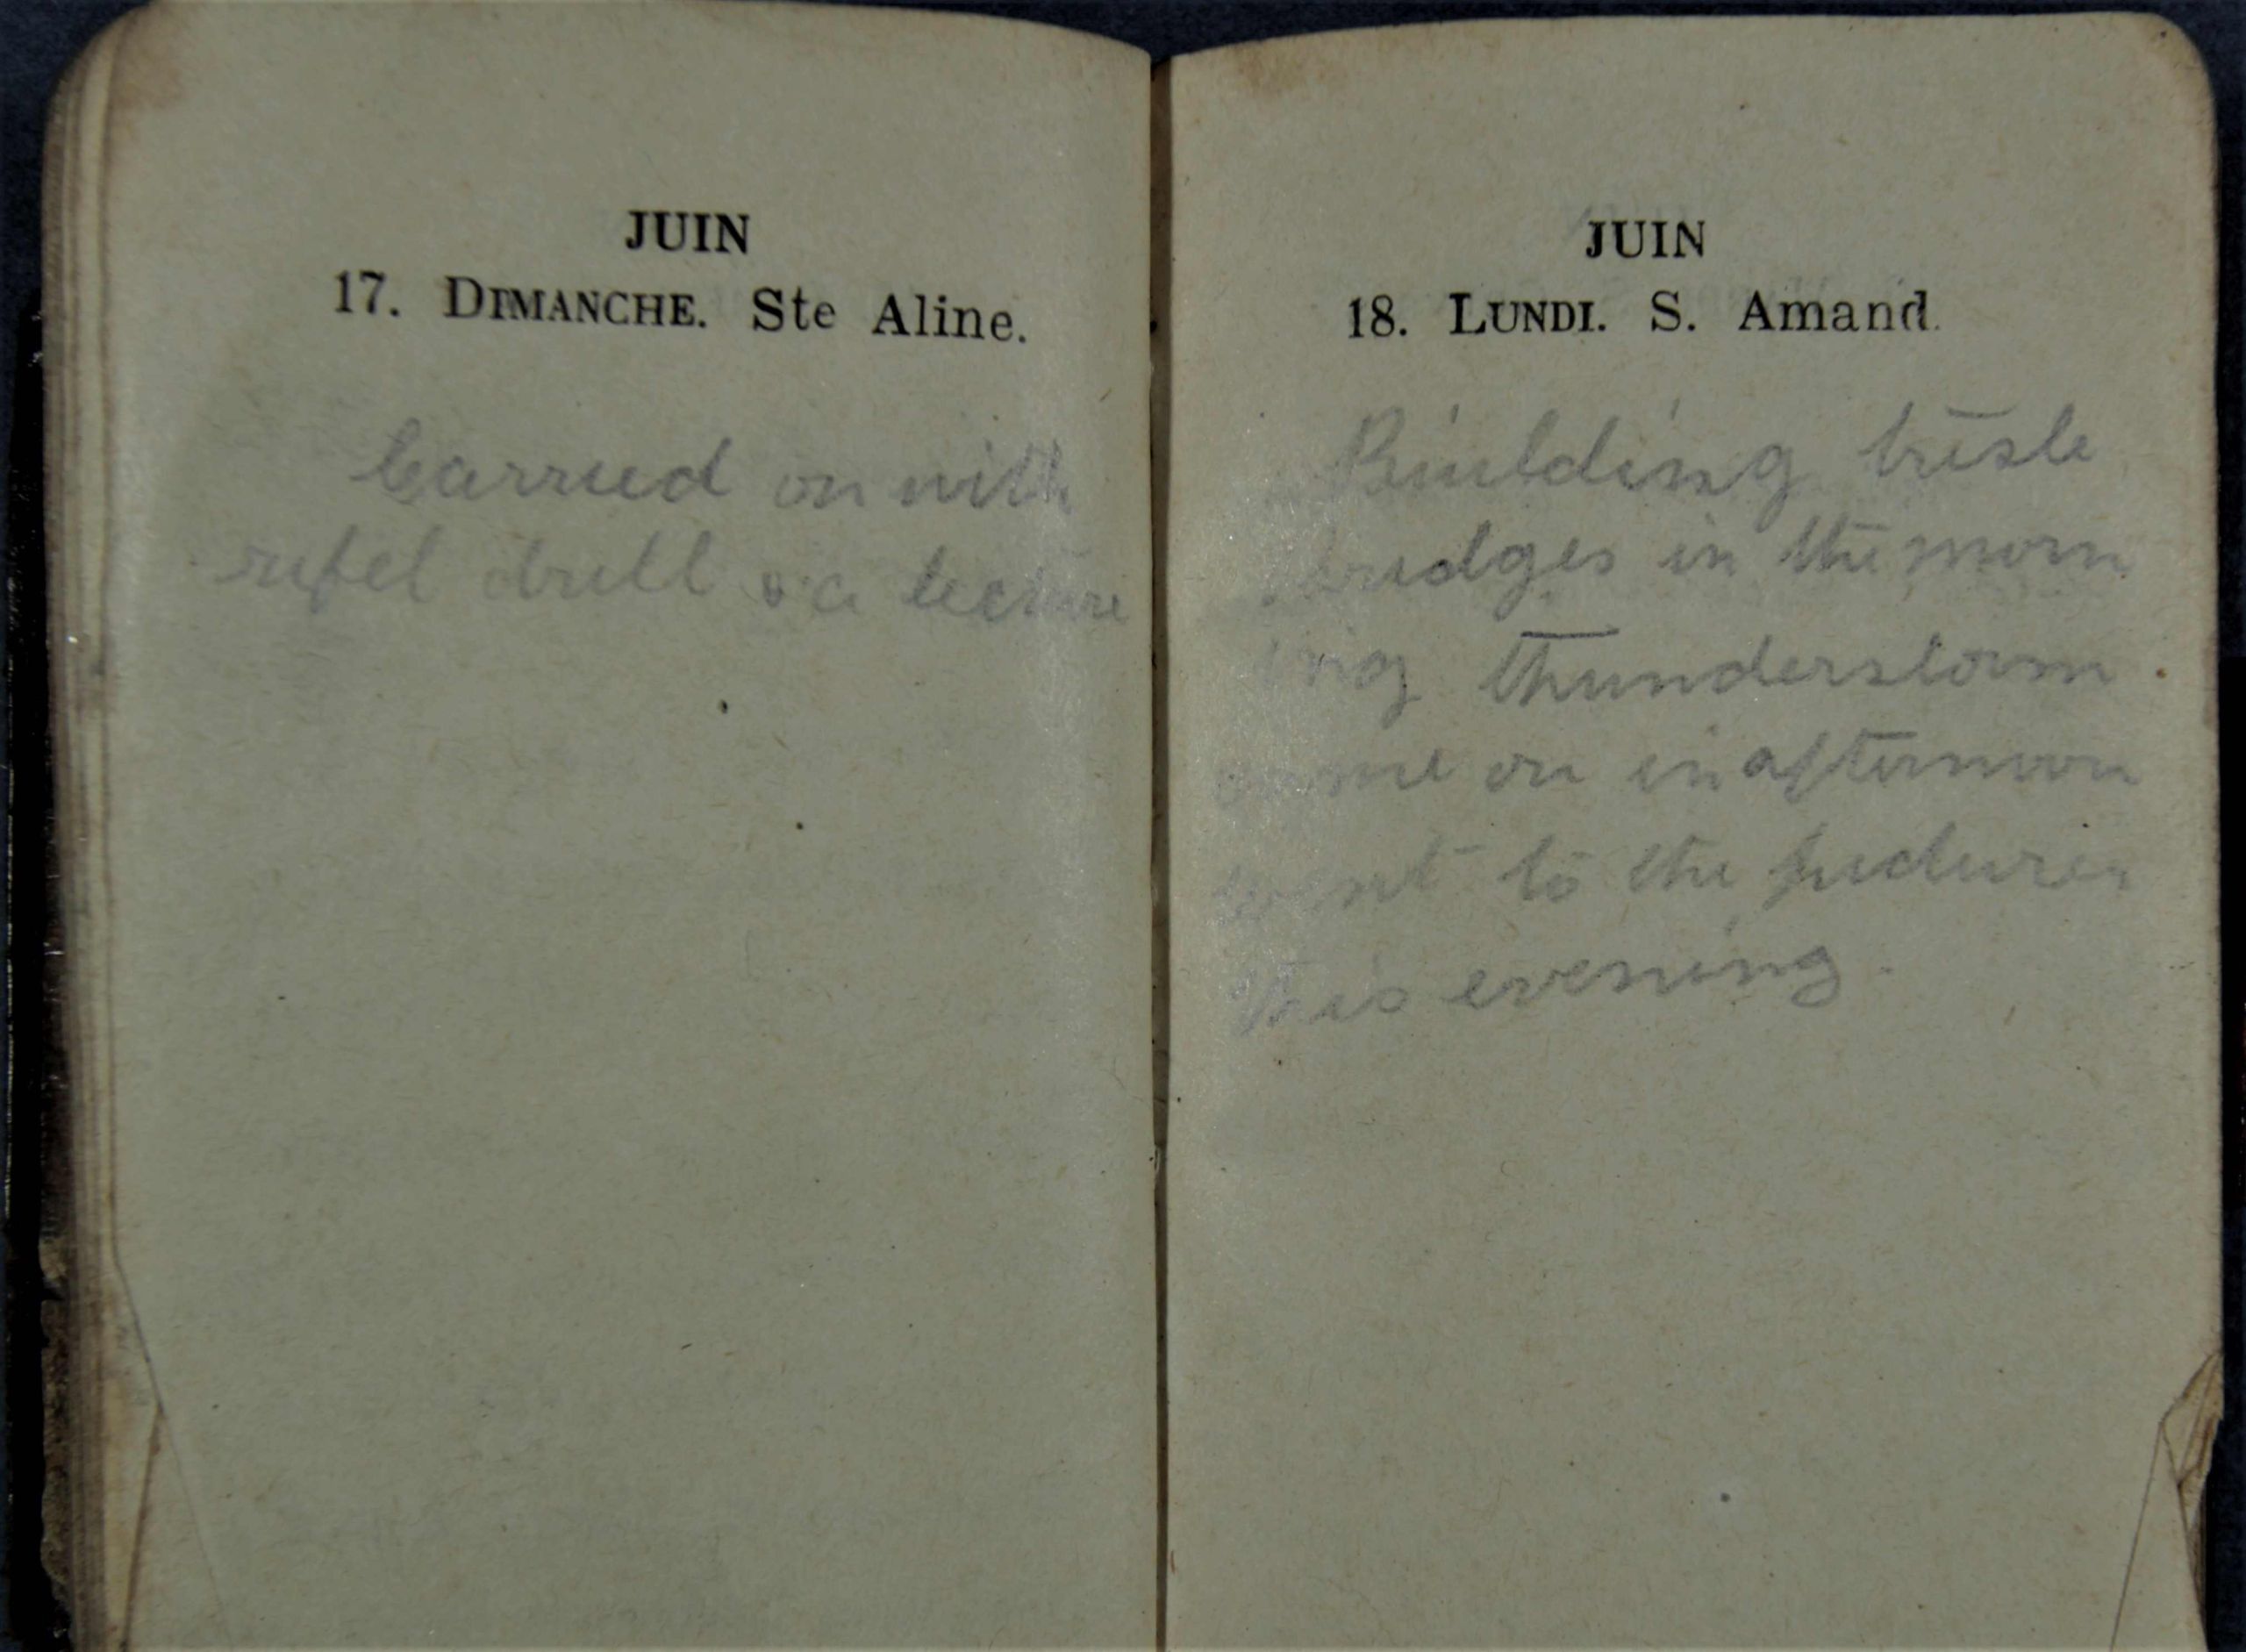 JUIN
17. DIMANCHE. Ste Aline.
Carried on with
rifel drill & a lecture
JUIN
18. LUNDI. S. Amand.
Building tresle
bridges in the morn
ing thunderstorm
come on in afternoon
went to the pictures
this evening.